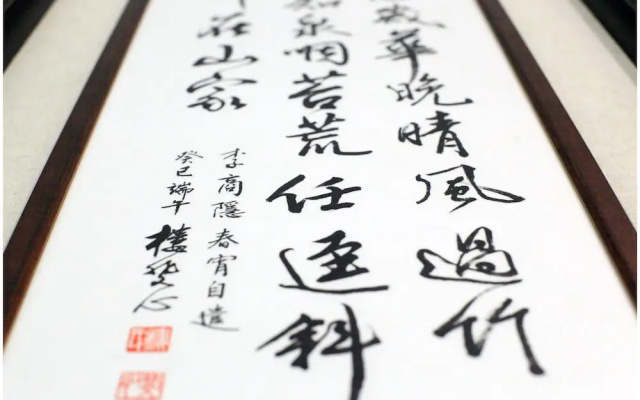 歲華晚晴風過竹
知泉咽苔荒任逕斜
在山家
李商隱春宵自遣
癸巳端午 樓心